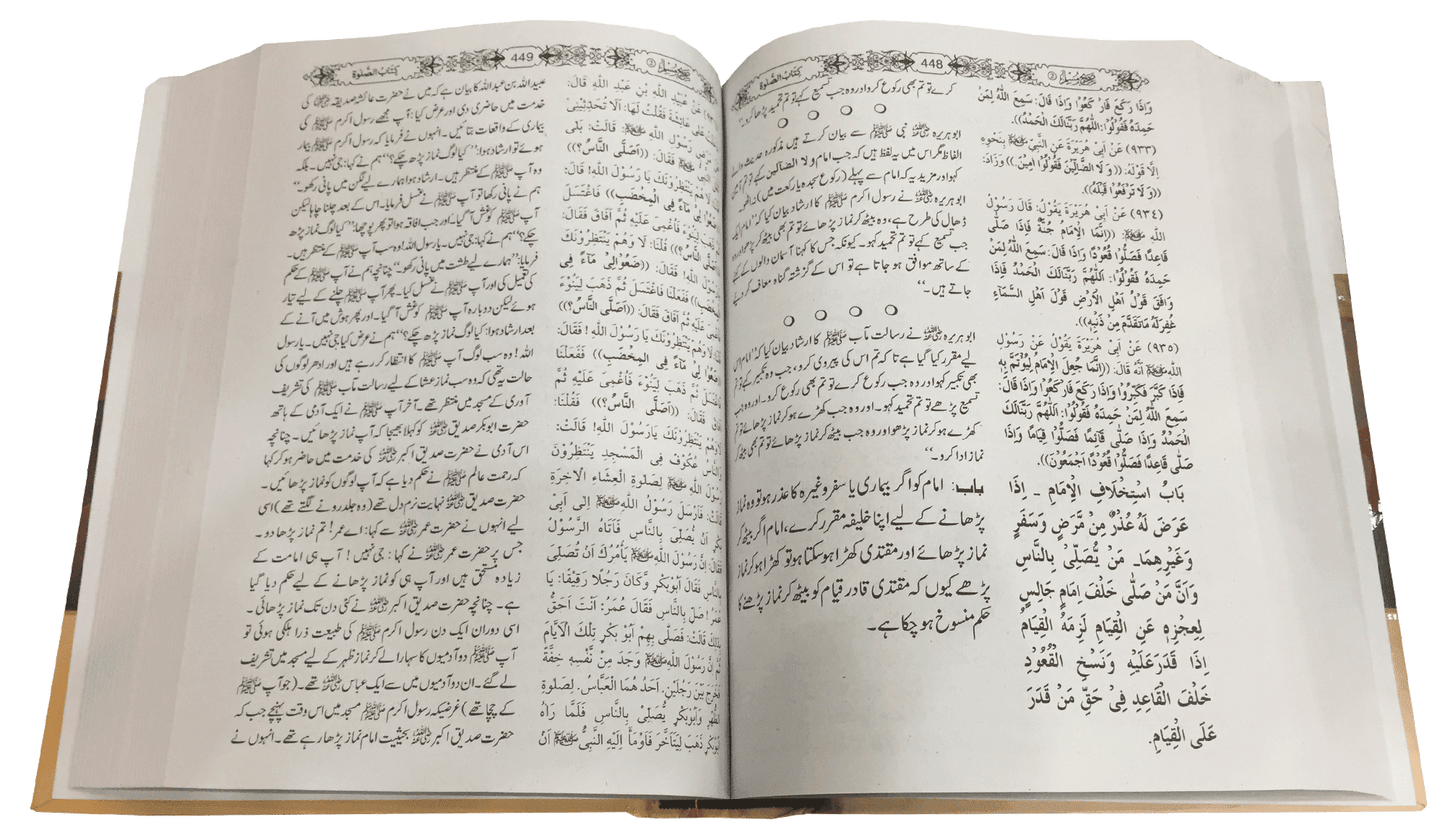 448
كتاب الصلوة
وَاِذَا رَكَعَ فَارْكَعُوْا وَاِذَا قَالَ: سَمِعَ اللّٰهُ لِمَنْ
حَمِدَهُ فَقُوْلُوْا: اَللّٰهُمَّ رَبَّنَا لَكَ الْحَمْدُ)).
(۹۳۳) عَنْ اَبِىْ هُرَيْرَةَ عَنِ النَّبِىِّ ﷺ بِنَحْوِهِ
اِلَّا قَوْلَهُ: ((وَلَا الضَّآلِّيْنَ فَقُوْلُوْا اٰمِيْنَ)) وَزَادَ:
((وَلَا تَرْفَعُوْا قَبْلَهُ)).
(۹۳٤) عَنْ اَبِىْ هُرَيْرَةَ يَقُوْلُ: قَالَ رَسُوْلُ
اللّٰهِ ﷺ: ((اِنَّمَا الْاِمَامُ جُنَّةٌ فَاِذَا صَلّٰى
قَاعِدًا فَصَلُّوْا قُعُوْدًا وَاِذَا قَالَ: سَمِعَ اللّٰهُ لِمَنْ
حَمِدَهُ فَقُوْلُوْا: اَللّٰهُمَّ رَبَّنَا لَكَ الْحَمْدُ فَاِذَا
وَافَقَ قَوْلُ اَهْلِ الْاَرْضِ قَوْلَ اَهْلِ السَّمَآءِ
غُفِرَ لَهُ مَا تَقَدَّمَ مِنْ ذَنْبِهِ)).
(۹۳٥) عَنْ اَبِىْ هُرَيْرَةَ يَقُوْلُ عَنْ رَسُوْلِ
اللّٰهِ ﷺ اَنَّهُ قَالَ: ((اِنَّمَا جُعِلَ الْاِمَامُ لِيُؤْتَمَّ بِهِ
فَاِذَا كَبَّرَ فَكَبِّرُوْا وَاِذَا رَكَعَ فَارْكَعُوْا وَاِذَا قَالَ:
سَمِعَ اللّٰهُ لِمَنْ حَمِدَهُ فَقُوْلُوْا: اَللّٰهُمَّ رَبَّنَا لَكَ
الْحَمْدُ وَاِذَا صَلّٰى قَآئِمًا فَصَلُّوْا قِيَامًا وَاِذَا
صَلّٰى قَاعِدًا فَصَلُّوْا قُعُوْدًا اَجْمَعُوْنَ)).
بَابُ اسْتِخْلَافِ الْاِمَامِ ۔ اِذَا
عَرَضَ لَهُ عُذْرٌ مِّنْ مَّرَضٍ وَسَفَرٍ
وَغَيْرِهِمَا۔ مَنْ يُّصَلِّىْ بِالنَّاسِ
وَاَنَّ مَنْ صَلّٰى خَلْفَ اِمَامٍ جَالِسٍ
لِعِجْزِهٖ عَنِ الْقِيَامِ لَزِمَهُ الْقِيَامُ
اِذَا قَدَرَ عَلَيْهِ وَنَسْخِ الْقُعُوْدِ
خَلْفَ الْقَاعِدِ فِىْ حَقِّ مَنْ قَدَرَ
عَلَى الْقِيَامِ.
کرے تو تم بھی رکوع کرو اور وہ جب تسمیع کہے تو تم تحمید پڑھا کرو۔“
ابو ہریرہ نبی ﷺ سے بیان کرتے ہیں مذکورہ حدیث والے
الفاظ مگر اس میں یہ لفظ ہیں کہ جب امام ولا الضالین کہے تو تم آمین
کہو اور مزید یہ کہ امام سے پہلے (رکوع سجدہ یا رکعت میں) نہ اٹھو۔
ابو ہریرہ نے رسول اکرم ﷺ کا ارشاد بیان کیا کہ ”امام ایک
ڈھال کی طرح ہے، وہ بیٹھ کر نماز پڑھائے تو تم بھی بیٹھ کر پڑھو اور وہ
جب تسمیع کہے تو تم تحمید کہو۔ کیونکہ جس کا کہنا آسمان والوں کے کہنے
کے ساتھ موافق ہو جاتا ہے تو اس کے گزشتہ گناہ معاف کر دیے
جاتے ہیں۔“
ابو ہریرہ نے رسالت مآب ﷺ کا ارشاد بیان کیا کہ ”امام اس
لیے مقرر کیا گیا ہے تا کہ تم اس کی پیروی کرو، جب وہ تکبیر کہے تو تم
بھی تکبیر کہو اور وہ جب رکوع کرے تو تم بھی رکوع کرو۔ اور وہ جب
تسمیع پڑھے تو تم تحمید کہو۔ اور وہ جب کھڑے ہو کر نماز پڑھائے تو تم
کھڑے ہو کر نماز پڑھو اور وہ جب بیٹھ کر نماز پڑھائے تو تم بھی بیٹھ کر
نماز ادا کرو۔“
باب: امام کو اگر بیماری یا سفر وغیرہ کا عذر ہو تو وہ نماز
پڑھانے کے لیے اپنا خلیفہ مقرر کرے، امام اگر بیٹھ کر
نماز پڑھائے اور مقتدی کھڑا ہو سکتا ہو تو کھڑا ہو کر نماز
پڑھے کیوں کہ مقتدی قادر قیام کو بیٹھ کر نماز پڑھنے کا
حکم منسوخ ہو چکا ہے۔
449
كتاب الصلوة
عَنْ عُبَيْدِ اللّٰهِ بْنِ عَبْدِ اللّٰهِ قَالَ:
عَلٰى عَائِشَةَ فَقُلْتُ لَهَا: اَلَا تُحَدِّثِيْنِىْ
رَسُوْلِ اللّٰهِ ﷺ قَالَتْ: بَلٰى
فَقَالَ: ((اَصَلَّى النَّاسُ؟))
وَهُمْ يَنْتَظِرُوْنَكَ يَا رَسُوْلَ اللّٰهِ! قَالَ:
مَآءً فِى الْمِخْضَبِ)) فَاغْتَسَلَ
ذَهَبَ لِيَنُوْءَ فَاُغْمِىَ عَلَيْهِ ثُمَّ اَفَاقَ فَقَالَ:
النَّاسُ؟)) قُلْنَا: لَا وَهُمْ يَنْتَظِرُوْنَكَ
رَسُوْلَ اللّٰهِ! فَقَالَ: ((ضَعُوْا لِىْ مَآءً فِى
الْمِخْضَبِ)) فَفَعَلْنَا فَاغْتَسَلَ ثُمَّ ذَهَبَ لِيَنُوْءَ
عَلَيْهِ ثُمَّ اَفَاقَ فَقَالَ: ((اَصَلَّى النَّاسُ؟))
وَهُمْ يَنْتَظِرُوْنَكَ يَا رَسُوْلَ اللّٰهِ! فَقَالَ:
لِىْ مَآءً فِى الْمِخْضَبِ)) فَفَعَلْنَا
ثُمَّ ذَهَبَ لِيَنُوْءَ فَاُغْمِىَ عَلَيْهِ ثُمَّ
فَقَالَ: ((اَصَلَّى النَّاسُ؟)) فَقُلْنَا:
وَهُمْ يَنْتَظِرُوْنَكَ يَا رَسُوْلَ اللّٰهِ! قَالَتْ:
عُكُوْفٌ فِى الْمَسْجِدِ يَنْتَظِرُوْنَ
رَسُوْلَ اللّٰهِ ﷺ لِصَلٰوةِ الْعِشَآءِ الْاٰخِرَةِ
قَالَتْ: فَاَرْسَلَ رَسُوْلُ اللّٰهِ ﷺ اِلٰى اَبِىْ
بَكْرٍ اَنْ يُّصَلِّىَ بِالنَّاسِ فَاَتَاهُ الرَّسُوْلُ
فَقَالَ: اِنَّ رَسُوْلَ اللّٰهِ ﷺ يَاْمُرُكَ اَنْ تُصَلِّىَ
بِالنَّاسِ فَقَالَ اَبُوْبَكْرٍ وَكَانَ رَجُلًا رَقِيْقًا: يَا
عُمَرُ! صَلِّ بِالنَّاسِ فَقَالَ عُمَرُ: اَنْتَ اَحَقُّ
بِذٰلِكَ قَالَتْ: فَصَلّٰى بِهِمْ اَبُوْ بَكْرٍ تِلْكَ الْاَيَّامَ
ثُمَّ اَنَّ رَسُوْلَ اللّٰهِ ﷺ وَجَدَ مِنْ نَّفْسِهٖ خِفَّةً
فَخَرَجَ بَيْنَ رَجُلَيْنِ. اَحَدُهُمَا الْعَبَّاسُ. لِصَلٰوةِ
الظُّهْرِ وَاَبُوْبَكْرٍ يُّصَلِّىْ بِالنَّاسِ فَلَمَّا رَاٰهُ
اَبُوْبَكْرٍ ذَهَبَ لِيَتَاَخَّرَ فَاَوْمَاَ اِلَيْهِ النَّبِىُّ ﷺ اَنْ
عبید اللہ بن عبد اللہ کا بیان ہے کہ میں نے حضرت عائشہ صدیقہ کی
خدمت میں حاضری دی اور عرض کیا: آپ مجھے رسول اکرم ﷺ کی
بیماری کے واقعات بتائیں۔ انہوں نے فرمایا کہ رسول اکرم ﷺ بیمار
ہوئے تو ارشاد ہوا: ”کیا لوگ نماز پڑھ چکے؟“ ہم نے کہا: جی نہیں۔ بلکہ
وہ آپ ﷺ کے منتظر ہیں۔ ارشاد ہوا ہمارے لیے لگن میں پانی رکھو۔“
ہم نے پانی رکھا تو آپ ﷺ نے غسل فرمایا۔ اس کے بعد چلنا چاہا لیکن
آپ ﷺ کو غش آ گیا۔ اور جب افاقہ ہوا تو پھر پوچھا: ”کیا لوگ نماز پڑھ
چکے؟“ ہم نے کہا: جی نہیں۔ یا رسول اللہ! وہ سب آپ ﷺ کے منتظر ہیں۔
فرمایا: ”ہمارے لیے طشت میں پانی رکھو۔“ چنانچہ ہم نے آپ ﷺ کے حکم
کی تعمیل کی اور آپ ﷺ نے غسل کیا۔ پھر آپ ﷺ چلنے کے لیے تیار
ہوئے لیکن دوبارہ آپ ﷺ کو غش آ گیا۔ اور پھر ہوش میں آنے کے
بعد ارشاد ہوا: کیا لوگ نماز پڑھ چکے؟“ ہم نے عرض کیا جی نہیں۔ یا رسول
اللہ! وہ سب لوگ آپ ﷺ کا انتظار کر رہے ہیں اور ادھر لوگوں کی
حالت یہ تھی کہ وہ سب نماز عشا کے لیے رسالت مآب ﷺ کی تشریف
آوری کے مسجد میں منتظر تھے۔ آخر آپ ﷺ نے ایک آدمی کے ہاتھ
حضرت ابوبکر صدیق کو کہلا بھیجا کہ آپ نماز پڑھائیں۔ چنانچہ
اس آدمی نے حضرت صدیق اکبر کی خدمت میں حاضر ہو کر کہا
کہ رحمت عالم ﷺ نے حکم دیا ہے کہ آپ لوگوں کو نماز پڑھائیں۔
حضرت صدیق نہایت نرم دل تھے (وہ جلد رونے لگتے تھے) اسی
لیے انہوں نے حضرت عمر سے کہا: اے عمر! تم نماز پڑھا دو۔
جس پر حضرت عمر نے کہا: جی نہیں! آپ ہی امامت کے
زیادہ مستحق ہیں اور آپ ہی کو نماز پڑھانے کے لیے حکم دیا گیا
ہے۔ چنانچہ حضرت صدیق اکبر نے کئی دن تک نماز پڑھائی۔
اسی دوران ایک دن رسول اکرم ﷺ کی طبیعت ذرا ہلکی ہوئی تو
آپ ﷺ دو آدمیوں کا سہارا لے کر نماز ظہر کے لیے مسجد میں تشریف
لے گئے۔ ان دو آدمیوں میں سے ایک عباس تھے۔ (جو آپ ﷺ
کے چچا تھے) غرضیکہ رسول اکرم ﷺ مسجد میں اس وقت پہنچے جب کہ
حضرت صدیق اکبر بحیثیت امام نماز پڑھا رہے تھے۔ انہوں نے